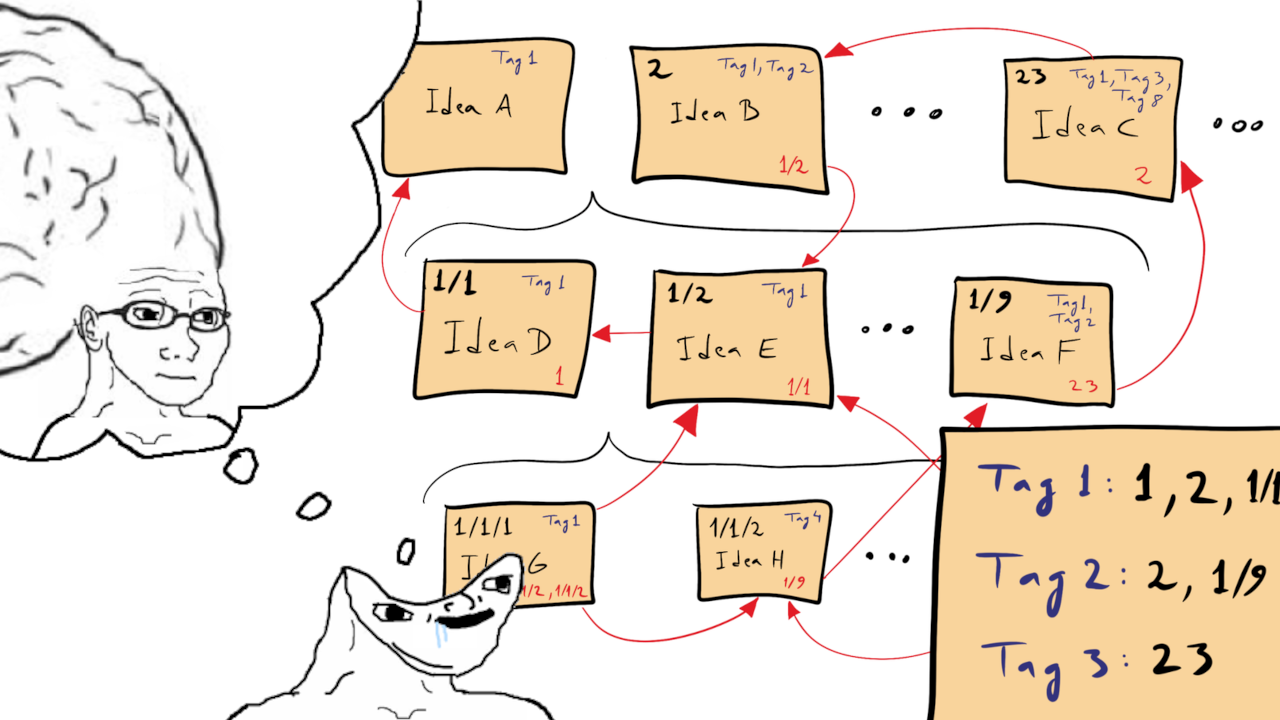 Tag 1
Idea A
2 Tag 1, Tag 2
Idea B
1/2
23 Tag 1, Tag 3,
Tag 8
Idea C
2
1/1 Tag 1
Idea D
1
1/2 Tag 1
Idea E
1/1
1/9 Tag 1,
Tag 2
Idea F
23
1/1/1 Tag 1
1/2, 1/1/2
1/1/2 Tag 4
Idea H
1/9
Tag 1: 1, 2, 1/1
Tag 2: 2, 1/9
Tag 3: 23